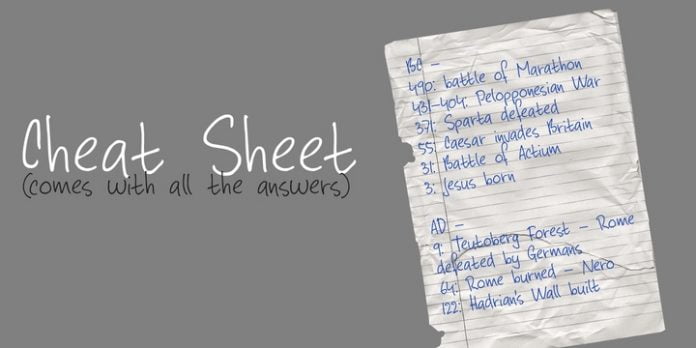 Cheat Sheet
(comes with all the answers)
BC -
490: battle of Marathon
431-404: Peloponnesian War
371: Sparta defeated
55: Caesar invades Britain
31: Battle of Actium
3: Jesus born
AD -
9: Teutoberg Forest - Rome
defeated by Germans
64: Rome burned - Nero
122: Hadrian's Wall built